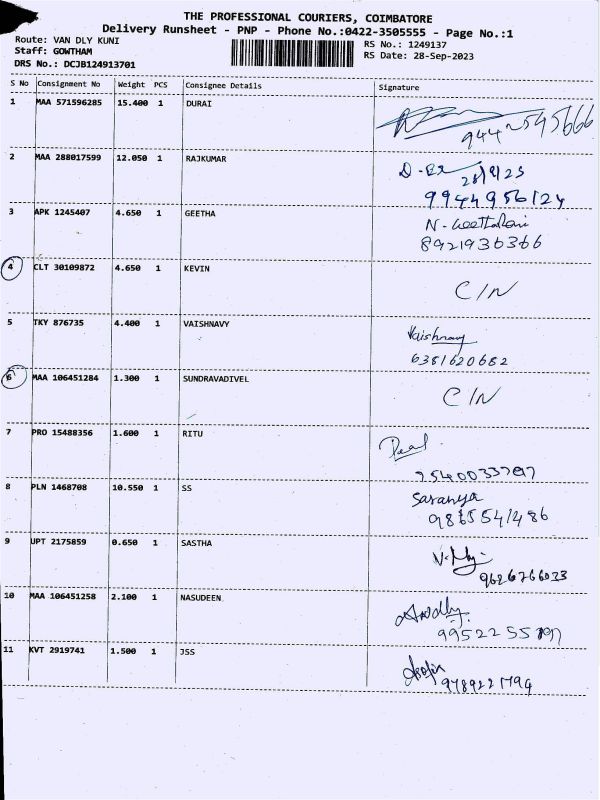 THE PROFESSIONAL COURIERS, COIMBATORE
Delivery Runsheet - PNP - Phone No.:0422-3505555 - Page No.:1
Route: VAN DLY KUNI
Staff: GOWTHAM
DRS No.: DCJB124913701
RS No.: 1249137
RS Date: 28-Sep-2023
S No Consignment No Weight PCS Consignee Details Signature
1 MAA 571596285 15.400 1 DURAI
2 MAA 288017599 12.050 1 RAJKUMAR
28/9/23
9944956124
3 APK 1245407 4.650 1 GEETHA
N-Geetharani
8921936366
4 CLT 30109872 4.650 1 KEVIN C/N
5 TKY 876735 4.400 1 VAISHNAVY
Vaishnavy
6381620682
6 MAA 106451284 1.300 1 SUNDRAVADIVEL C/N
7 PRO 15488356 1.600 1 RITU
8 PLN 1468708 10.550 1 SS
Saranya
9865541486
9 UPT 2175859 0.650 1 SASTHA
9626766033
10 MAA 106451258 2.100 1 NASUDEEN
11 KVT 2919741 1.500 1 JSS
9789221794